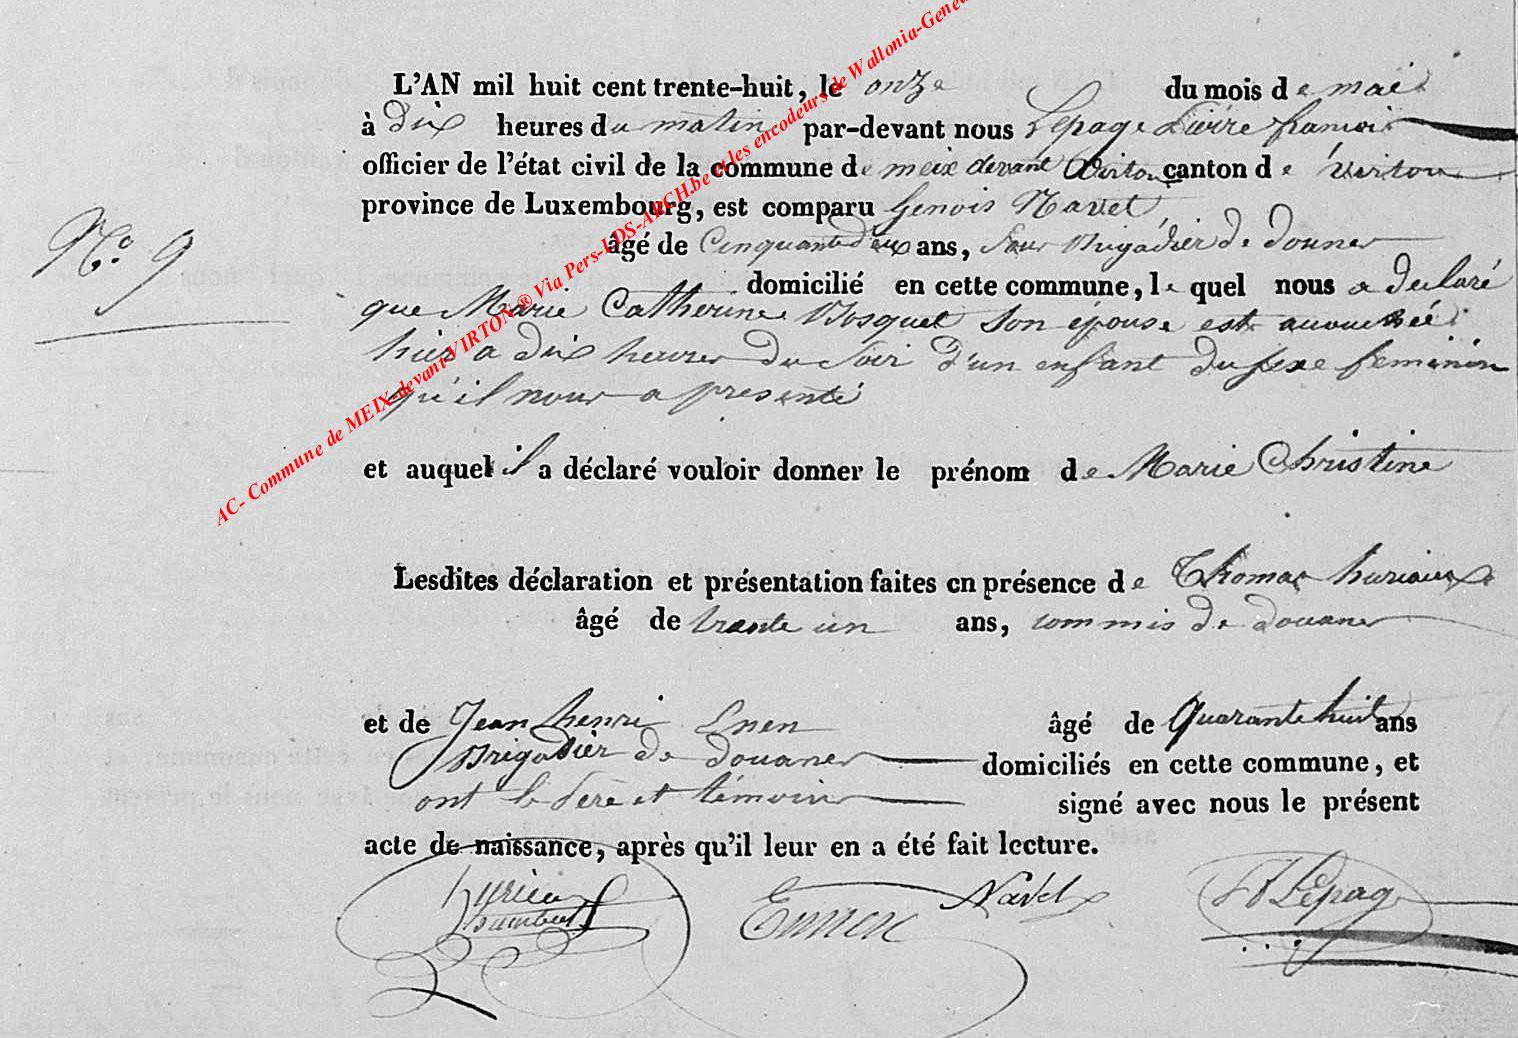 AC- Commune de MEIX-devant-VIRTON® Via Pers-LDS-ARCH.be et les encodeurs de Wallonia-Genea
L'AN mil huit cent trente-huit, le onze du mois de mai
à Dix heures du matin par-devant nous Lepage Pierre francois
officier de l'état civil de la commune de meix devant Virton canton de Virton
province de Luxembourg, est comparu Genois Navet
N.° 9
âgé de Cinquante deux ans, Sous Brigadier de douanes
domicilié en cette commune, lequel nous a declaré
que Marie Catherine Bosquet Son épouse est accouchée
hier a dix heures du Soir d'un enfant du sexe feminin
qu'il nous a presenté
et auquel il a déclaré vouloir donner le prénom de Marie Christine
Lesdites déclaration et présentation faites en présence de Thomas huriaux
âgé de trente un ans, commis de douanes
et de Jean henri Enen âgé de Quarante huit ans
Brigadier de douanes domiciliés en cette commune, et
ont le Père et témoins signé avec nous le présent
acte de naissance, après qu'il leur en a été fait lecture.
Navet
Ennen
Lepage